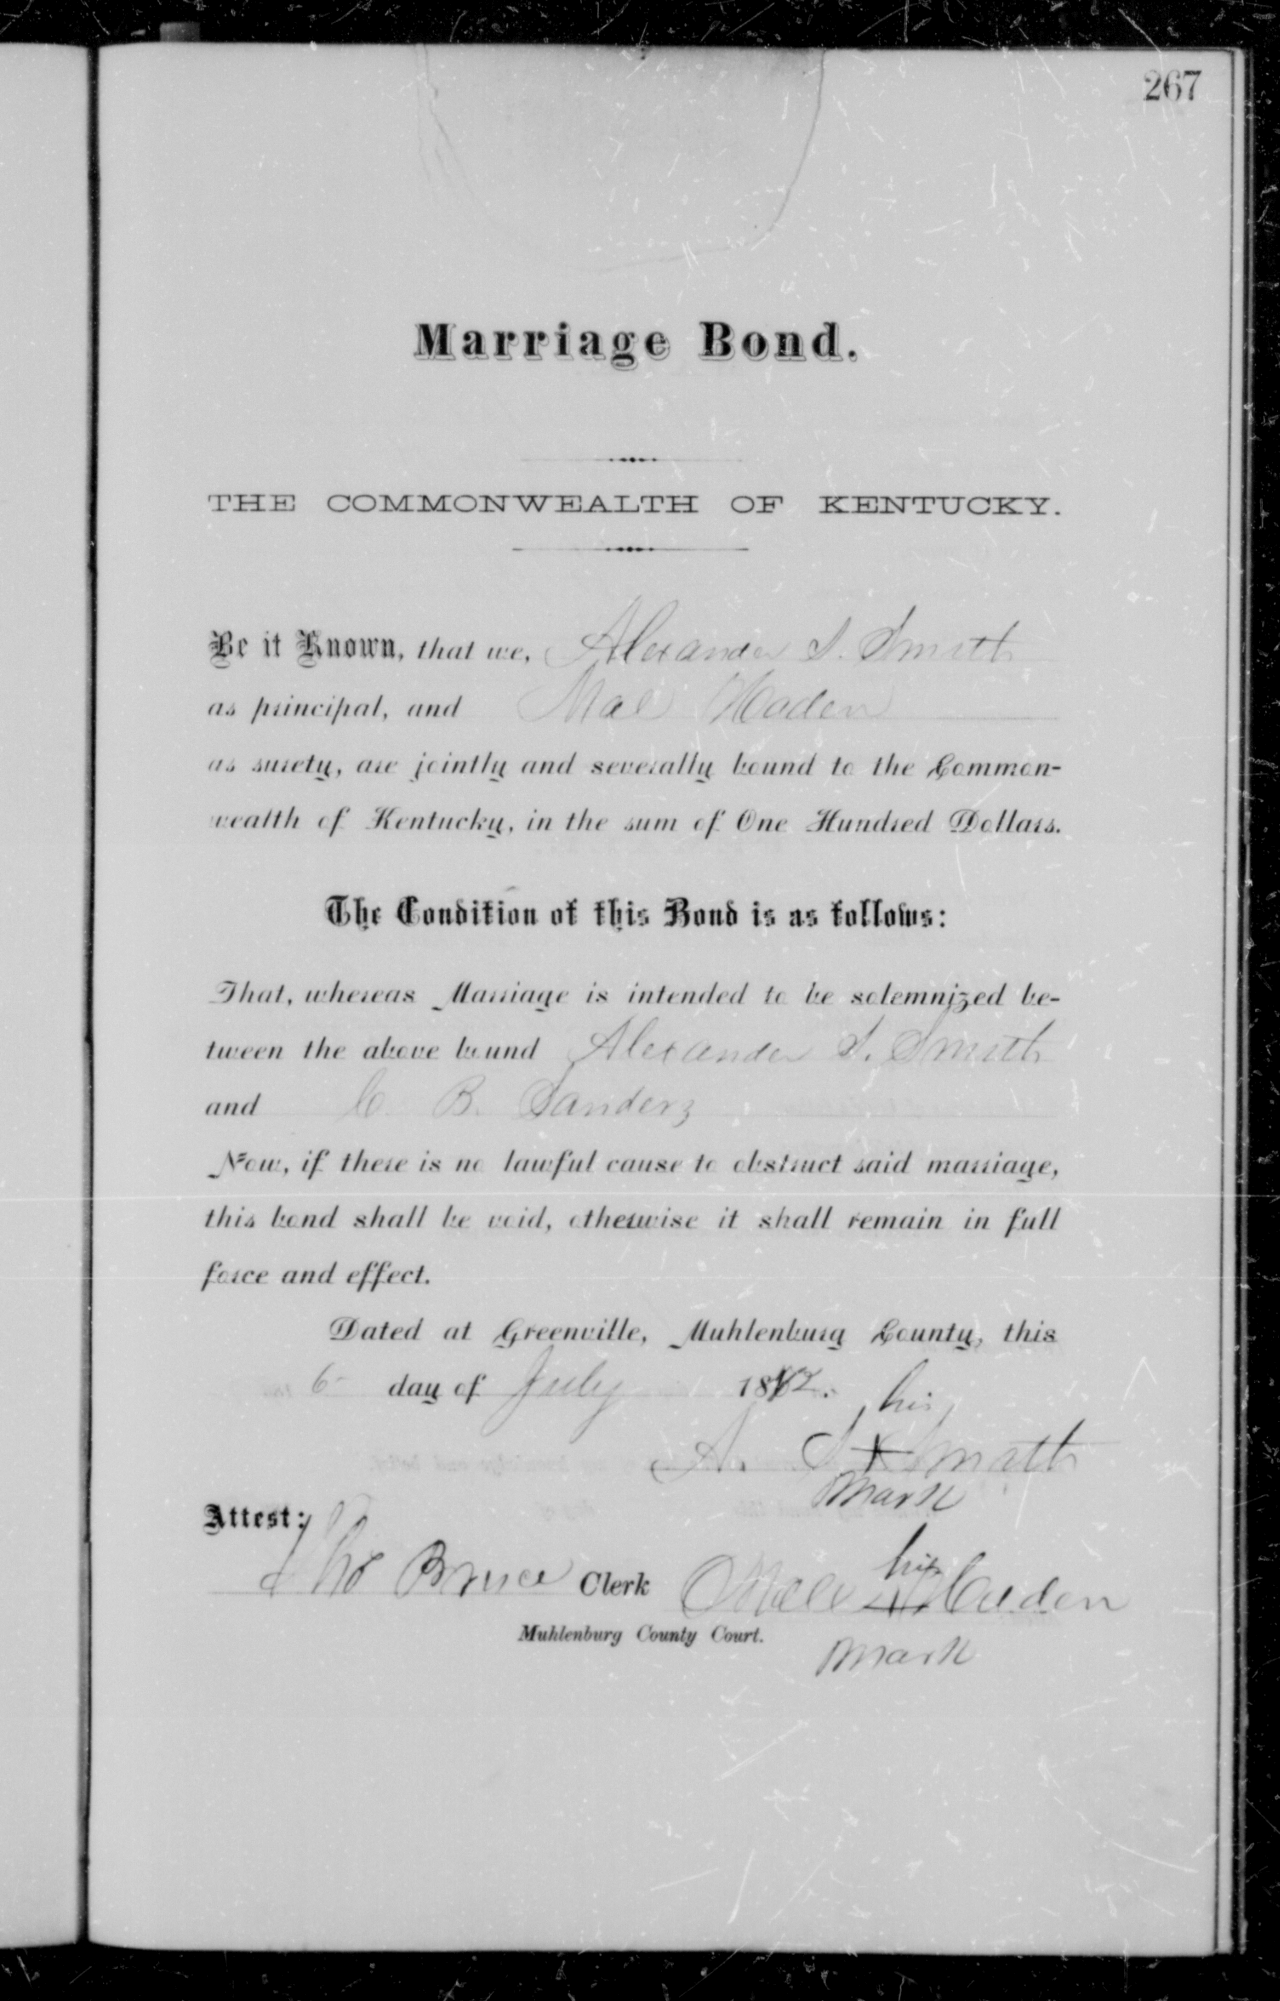 267
Marriage Bond.
THE COMMONWEALTH OF KENTUCKY.
Be it Known, that we, Alexander S. Smith
as principal, and Mal Haden
as surety, are jointly and severally bound to the Common-
wealth of Kentucky, in the sum of One Hundred Dollars.
The Condition of this Bond is as follows:
That, whereas Marriage is intended to be solemnized be-
tween the above bound Alexander S. Smith
and C B. Sanders
Now, if there is no lawful cause to obstruct said marriage,
this bond shall be void, otherwise it shall remain in full
force and effect.
Dated at Greenville, Muhlenburg County, this
6 day of July 1882.
his
A. S x Smith
mark
Attest:
Tho Bruce Clerk
his
Male x Haden
Muhlenburg County Court.
mark